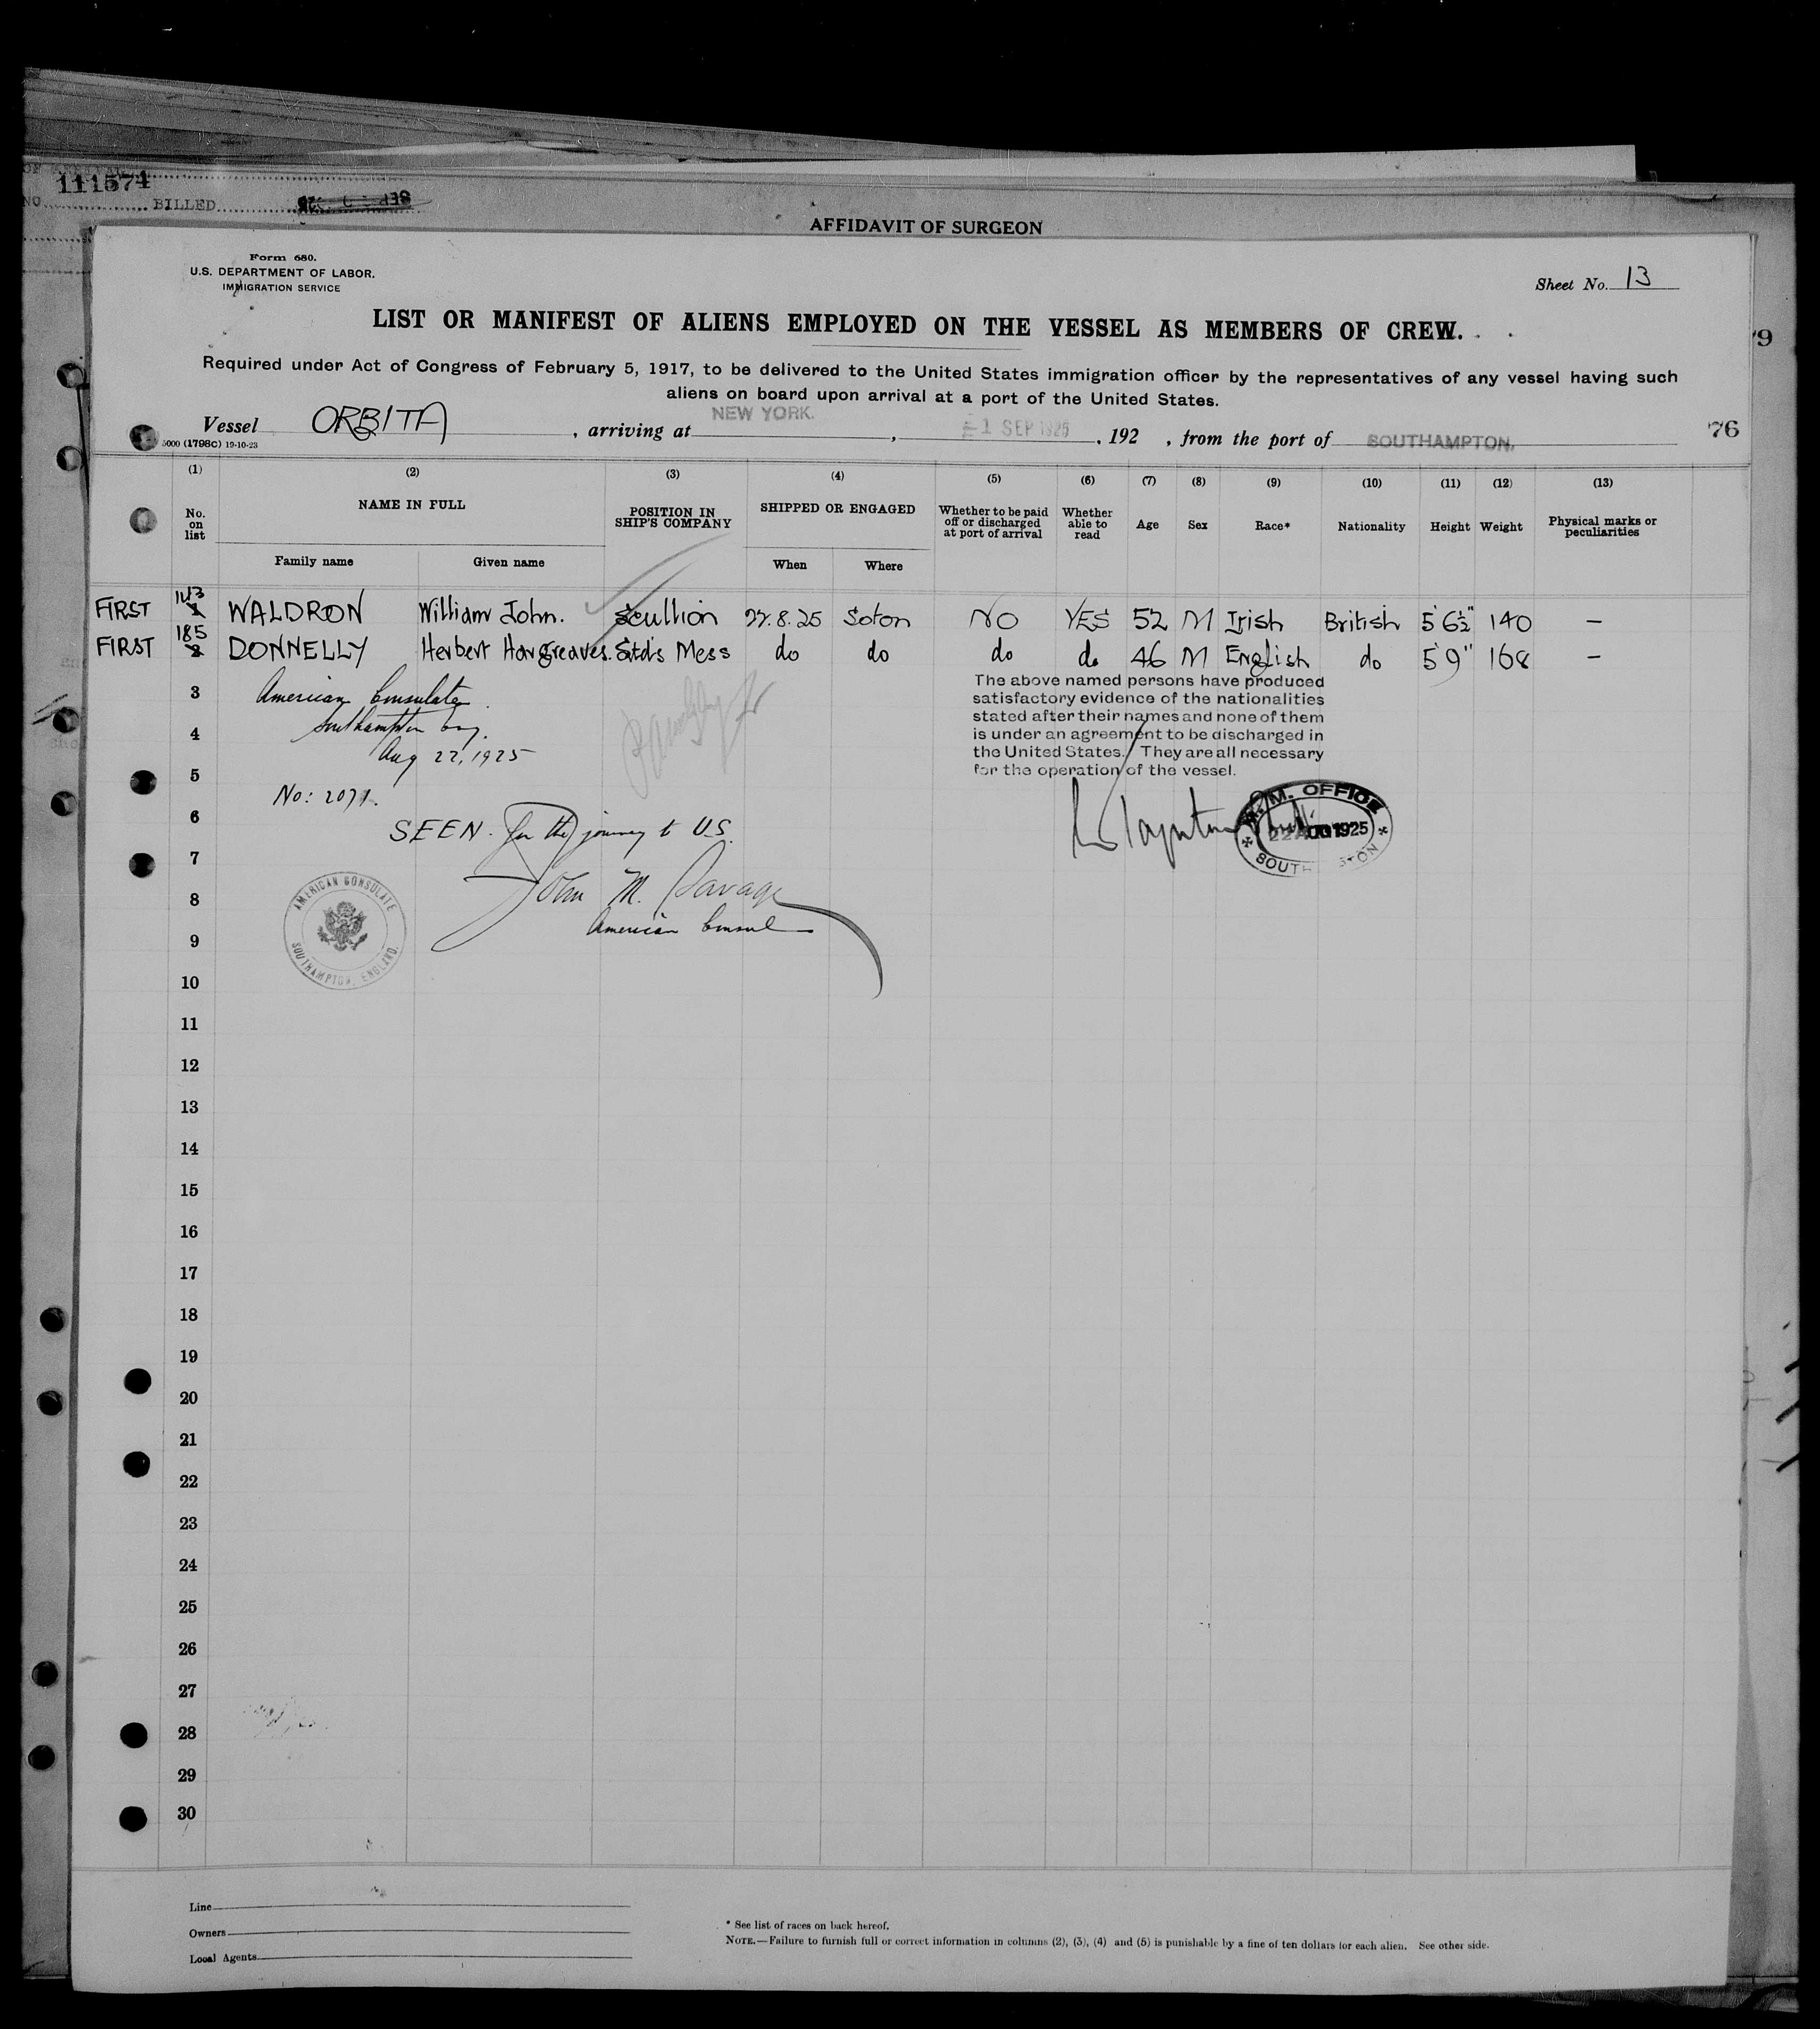 111574
NO. BILLED
AFFIDAVIT OF SURGEON
Form 680.
U.S. DEPARTMENT OF LABOR.
IMMIGRATION SERVICE
Sheet No. 13
LIST OR MANIFEST OF ALIENS EMPLOYED ON THE VESSEL AS MEMBERS OF CREW.
79
Required under Act of Congress of February 5, 1917, to be delivered to the United States immigration officer by the representatives of any vessel having such
aliens on board upon arrival at a port of the United States.
Vessel ORBITA, arriving at NEW YORK., 1 SEP 1925, 192 , from the port of SOUTHAMPTON.
76
5000 (1798C) 19-10-23
(1) (2) (3) (4) (5) (6) (7) (8) (9) (10) (11) (12) (13)
No. on list NAME IN FULL POSITION IN SHIP'S COMPANY SHIPPED OR ENGAGED Whether to be paid off or discharged at port of arrival Whether able to read Age Sex Race* Nationality Height Weight Physical marks or peculiarities
Family name Given name When Where
FIRST 143 1 WALDRON William John. Scullion 22.8.25 Soton NO YES 52 M Irish British 5'6½" 140 —
FIRST 185 2 DONNELLY Herbert Hargreaves. Std's Mess do do do do 46 M English do 5'9" 168 —
The above named persons have produced
satisfactory evidence of the nationalities
stated after their names and none of them
is under an agreement to be discharged in
the United States. They are all necessary
for the operation of the vessel.
3 American Consulate
4 Southampton Eng.
Aug 22, 1925
5
No: 2071.
6 SEEN. for the journey to U.S.
M.M. OFFICE
22 AUG 1925
SOUTH TON
7
8 John M. Savage
9 American Consul
AMERICAN CONSULATE
SOUTHAMPTON, ENGLAND.
10
11
12
13
14
15
16
17
18
19
20
21
22
23
24
25
26
27
28
29
30
Line
Owners
Local Agents
* See list of races on back hereof.
NOTE.—Failure to furnish full or correct information in columns (2), (3), (4) and (5) is punishable by a fine of ten dollars for each alien. See other side.